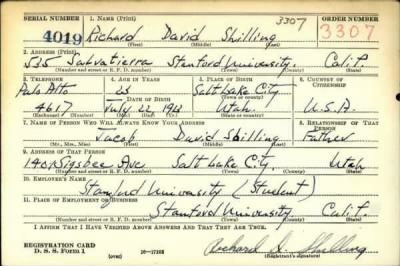 SERIAL NUMBER 1. NAME (Print) 3307 ORDER NUMBER
4019 Richard David Shilling 3307
(First) (Middle) (Last)
2. ADDRESS (Print)
535 Salvatierra Stanford University. Calif.
(Number and street or R. F. D. number) (Town) (County) (State)
3. TELEPHONE 4. AGE IN YEARS 5. PLACE OF BIRTH 6. COUNTRY OF CITIZENSHIP
Palo Alto 23 Salt Lake City
DATE OF BIRTH (Town or county)
4617 July 22, Utah. U.S.A.
(Exchange) (Number) (Mo.) (Day) (Yr.) (State or country)
7. NAME OF PERSON WHO WILL ALWAYS KNOW YOUR ADDRESS 8. RELATIONSHIP OF THAT PERSON
Jacob David Shilling Father
(Mr., Mrs., Miss) (First) (Middle) (Last)
9. ADDRESS OF THAT PERSON
Sigsbee Ave Salt Lake City. Utah
(Number and street or R. F. D. number) (Town) (County) (State)
10. EMPLOYER'S NAME
Stanford University (Student)
11. PLACE OF EMPLOYMENT OR BUSINESS
Stanford University Calif.
(Number and street or R. F. D. number) (Town) (County) (State)
I AFFIRM THAT I HAVE VERIFIED ABOVE ANSWERS AND THAT THEY ARE TRUE.
REGISTRATION CARD
D. S. S. Form 1 (over) Richard D. Shilling
(Registrant's signature)